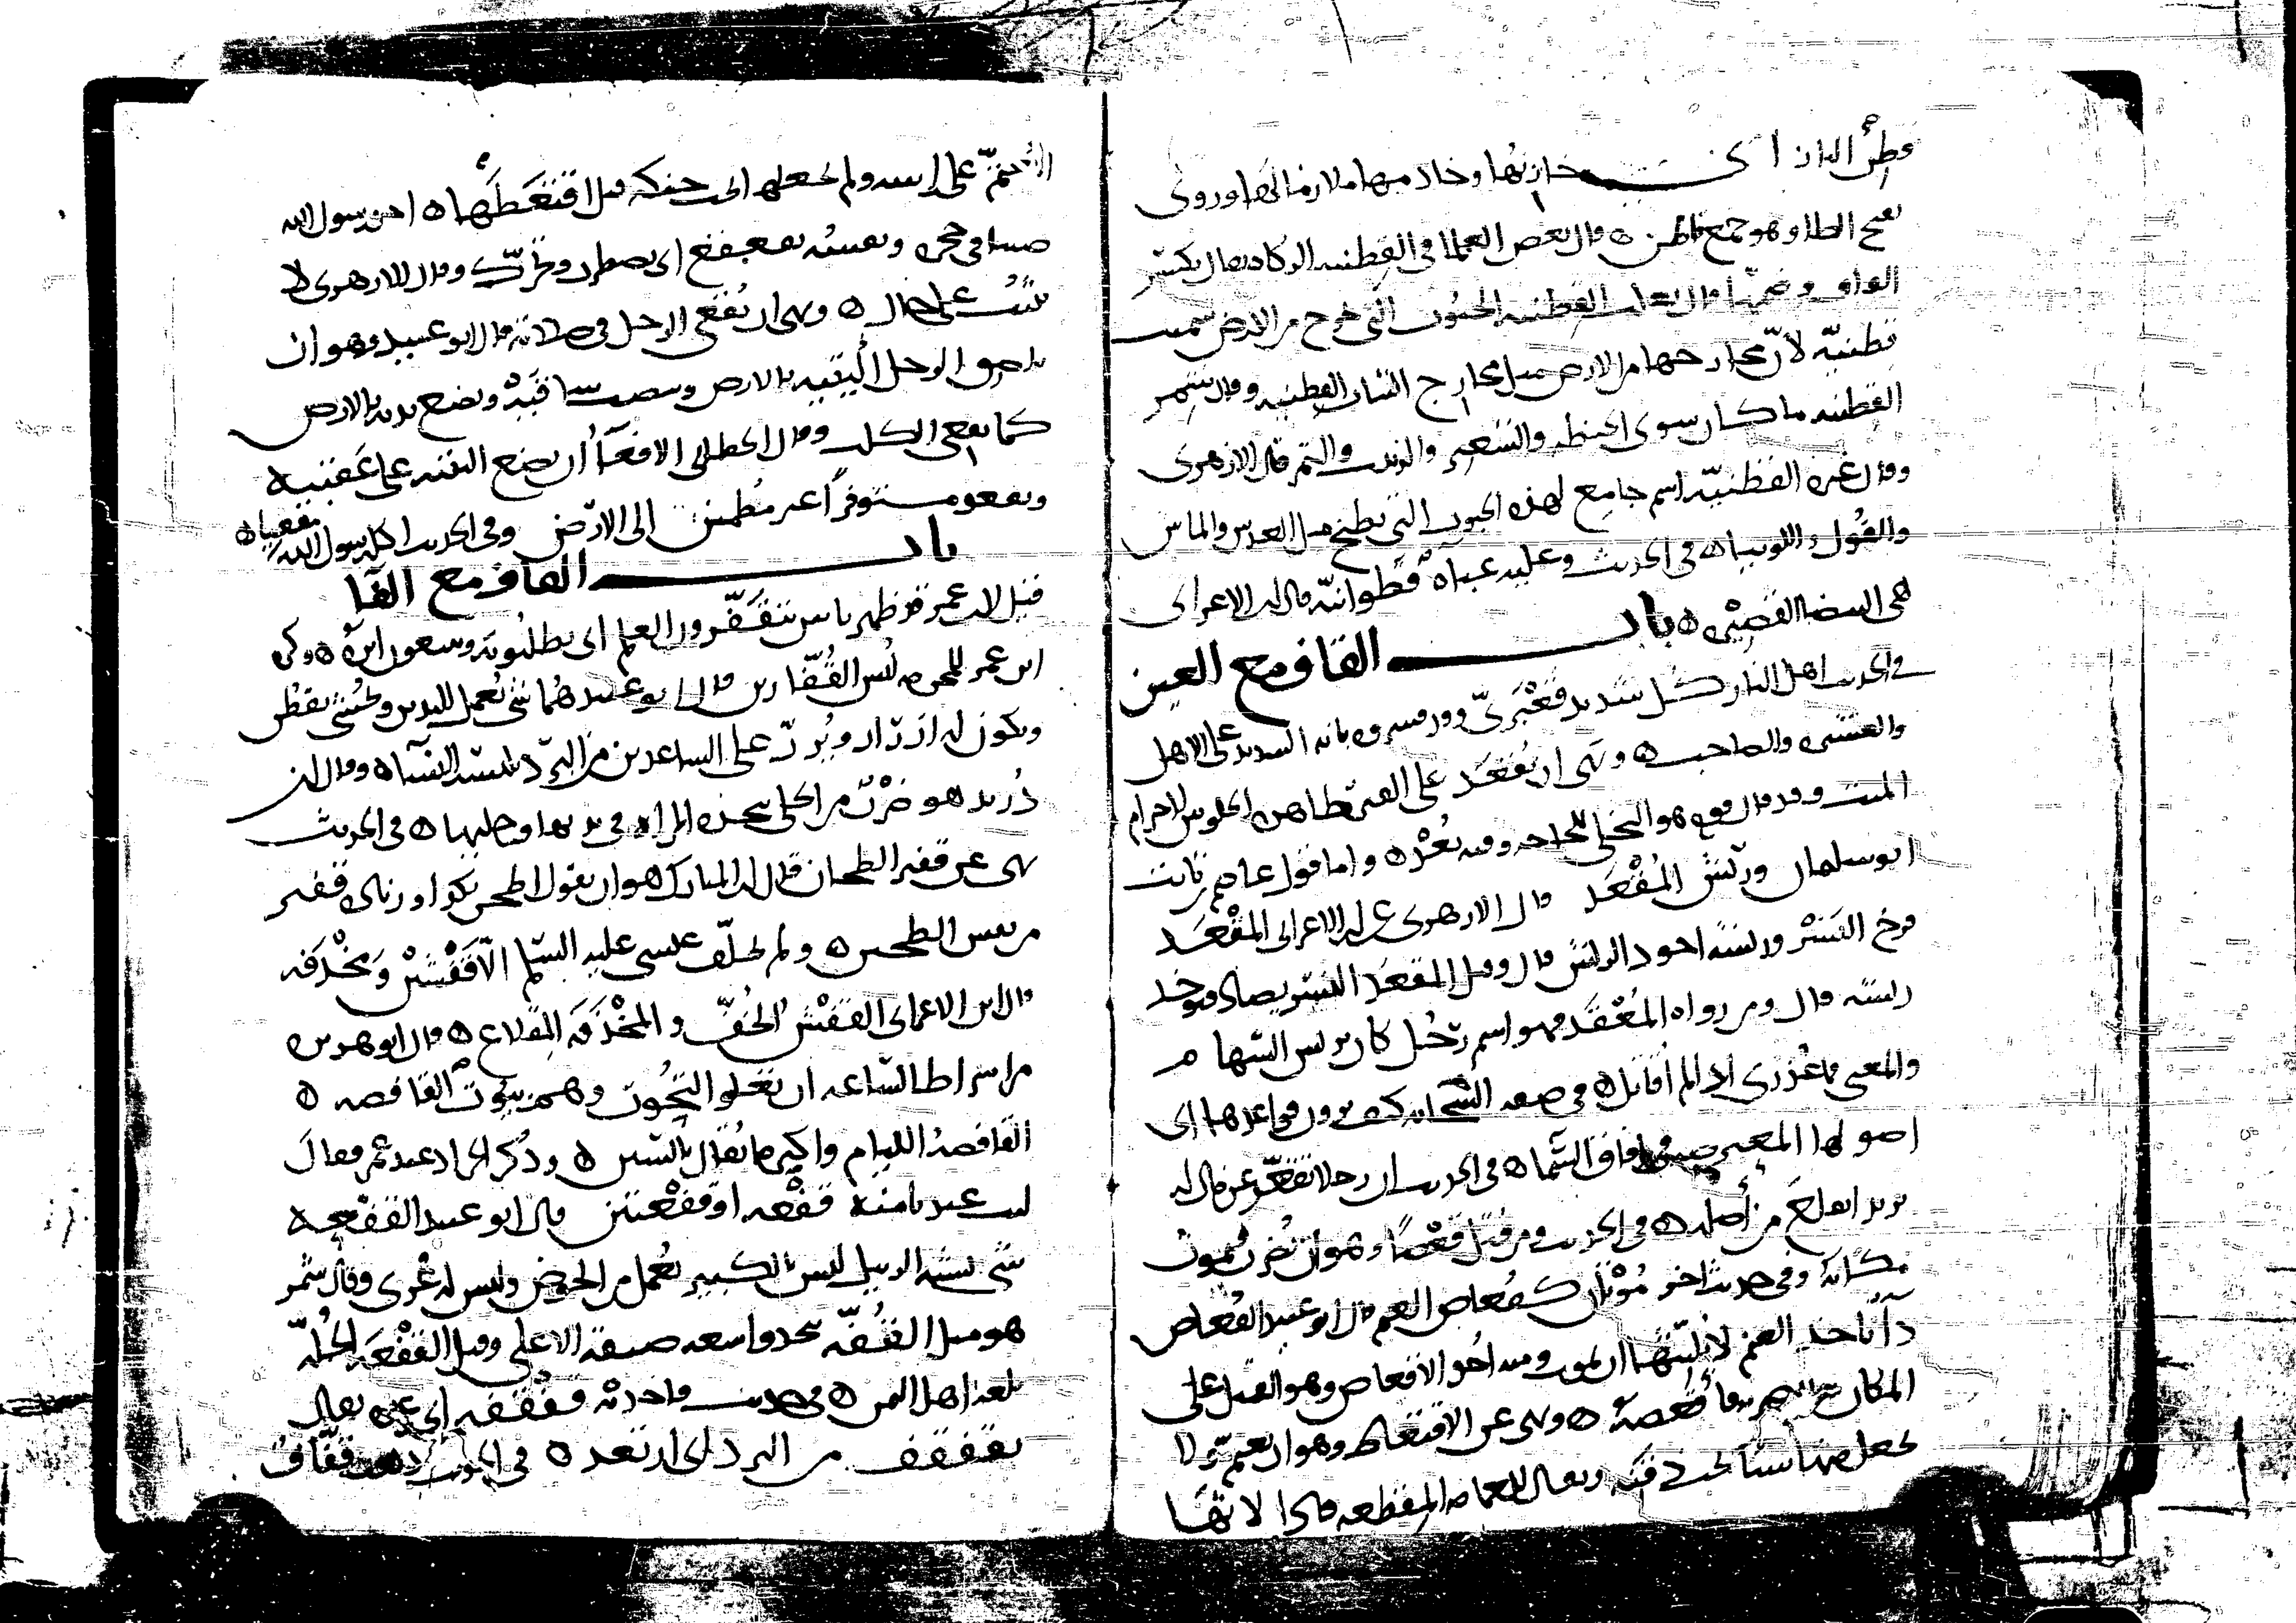 قطن النار اي خازنها وخادمها ملازما لها وروى
بفتح الطا وهو جمع قاطن ه وقال بعض العلما في القطنيه الزكاه يقال بكسر
القاف وضمها قال ثعلب القطنيه الحبوب التي تخرج من الارض سميت
قطنيّه لأنّ مخارجها من الارض مثل مخارج الثياب القطنيه وقال شمر
القطنيه ما كان سوى الحنطه والشعير والزبيب والتمر قال الازهري
وقال غيره القطنيّه اسم جامع لهذه الحبوب التي تطبخ مثل العدس والماش
والفول واللوبيا ه في الحديث وعليه عباه قطوانيّه قال ابن الاعرابي
هي البيضا القصيره ه باب القاف مع العين
في الحديث اهل النار كل شديد قعبريّ وورد مفسره بانه الشديد على الاهل
والعشير والصاحب ه ونهى ان يُقعَد على القبر ظاهره الجلوس لاحترام
الميت وقد قال قوم هو التخلي للحاجه وفيه بُعدْ ه واما قول عاصم بن ثابت
ابو سليمان وريش المُقْعَد قال الازهري عن ابن الاعرابي المُقْعَد
فرخ النَسْر وريشه اجود الريش قال وقيل المقعَد النسر يصاد فيوخذ
ريشه قال ومن رواه المُعْقَد فهو اسم رَجُل كان يريش السّهام
والمعنى ما عُذري اذا لم أقاتل ه في صفه السّحاب كيف ترون قواعدها اي
اصولها المعترضه في افاق السّما ه في الحديث ان رجلا تقعّر عن مال له
يريد انقلع من أصله ه في الحديث ومن قُتِل قعْصًا وهو ان يُضرب فيموت
مكانه وفي حديث اخر مُوتانٌ كقُعاص الغنم قال ابو عبيد القُعاص
دآ ياخذ الغنم لا يلبّثها ان تموت ومنه اخذ الاقعاص وهو القتل على
المكان يقال ضربه فأقعصه ه ونهى عن الاقتعاط وهو ان يعتم ولا
يجعل منها شيئا تحت ذقنه ويقال للعمامه المقعطه فاذا لاثها
المُعْتَمّ على راسه ولم يجعلها تحت حنكه قيل اقتعَطَها ه اخذ رسول الله
صبيا في حجره ونفسه تقعقع اي تضطرب وتحرّك وقال الازهري لا
تثبت على حال ه ونهى ان يُقعي الرجل في صلاته قال ابو عبيد وهو ان
يلصق الرجل أَليتيه بالارض وينصب ساقيْه ويضع يديه بالارض
كما يقعي الكلب وقال الخطابي الاقعآ أن يضع اليتيه على عَقبيه
ويقعد مستوفزًا غير مُطمئن الى الارض وفي الحديث اكل رسول الله مقعيا ه
باب القاف مع الفآ
قيل لابن عمر قد ظهر ناس يَتقَفّرون العلم اي يطلبونه ويتبعون اثره ه وكره
ابن عمر للمحرمه لُبس القُفّازين قال ابو عبيد هُما شي يُعمل لليدين ويُحشى بقطن
ويكون له ازرار ويُزرّ على الساعدين من البَرْد تلبسه النسآ ه وقال ابن
دُريد هو ضَرْبٌ من الحلي تتخذه المراه في يديها ورجليها ه في الحديث
نهى عن قفيز الطحان قال ابن المبارك هو ان يقول اطحن بكذا وزيادة قفيز
من نفس الطحين ه ولم يخلّف عيسى عليه السّلم الّا قَفْشَيْن وَمِخْذَفه
قال ابن الاعرابي القَفْش الخُفّ والمِخْذَفه المِقلاع ه قال ابو هريره
من اشراط السّاعه ان تعلو التُحُوت وهم بيوت القافصه ه
القافصهُ اللئام واكثر ما يُقال بالسين ه وذُكر الجراد عند عمر فقالَ
ليت عندنا منه قَفْعه او قَفْعتين قال ابو عبيد القَفْعه
شي يشبه الزبيل ليس بالكبير يُعمل من الخوص وليس له عُرى وقال شمر
هو مثل القُفّه تتخذ واسعه ضيقه الاعلى وقيل القَفْعَه الجُلّه
بلغه اهل اليمن ه في حديث فاخذته قَفْقَفه اي رعده يقال
تقفقف من البرد اي ارتعد ه في الحديث قفّاف